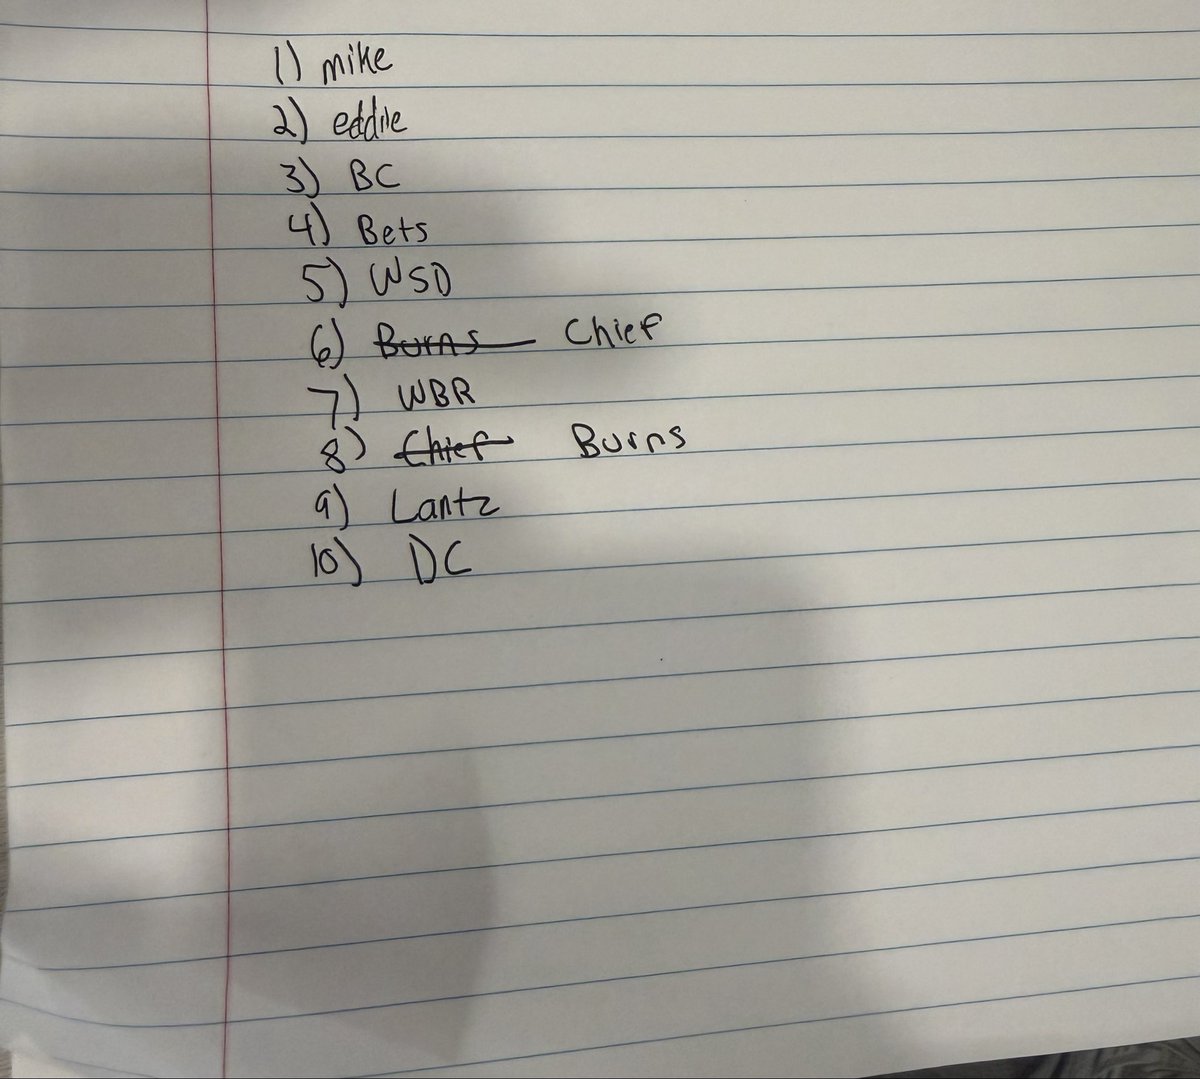 1) mike
2) eddie
3) BC
4) Bets
5) WSD
6) Burns Chief
7) WBR
8) Chief Burns
9) Lantz
10) DC